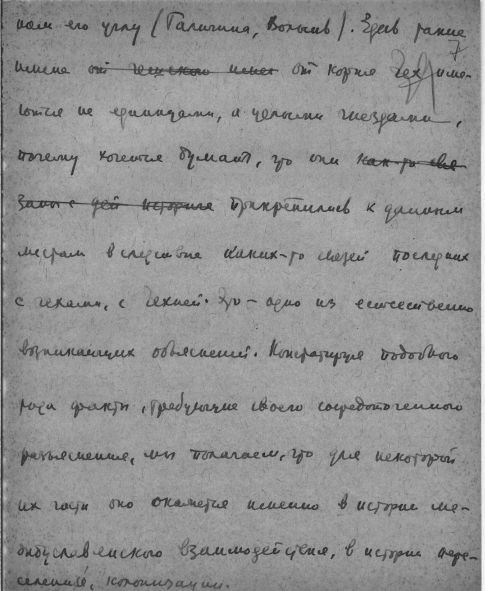 ном его углу (Галичина, Волынь). Здесь такие
7
имена от чешского имен от корня Чех име-
ются не единицами, а целыми гнездами,
почему хочется думать, что они как-то свя
заны с дей историей прикрепились к данным
местам вследствие каких-то связей последних
с чехами, с Чехией. Это – одно из естественно
возникающих объяснений. Констатируя подобного
рода факты, требующие своего сосредоточенного
разъяснения, мы полагаем, что для некоторой
их части оно окажется именно в истории ме-
ждуславянского взаимодействия, в истории пере-
селений, колонизации.